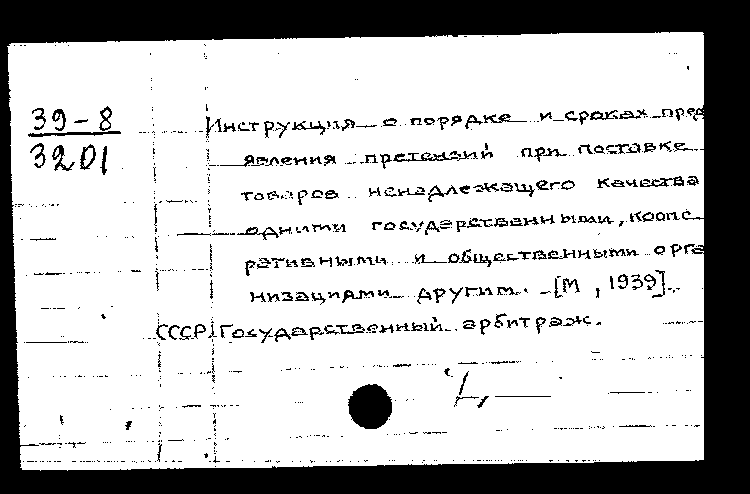 39-8
3201
Инструкция о порядке и сроках пред
явления претензий при поставке
товаров ненадлежащего качества
одними государственными, коопе
ративными и общественными орга
низациями другим. - [М, 1939].
СССР. Государственный арбитраж.